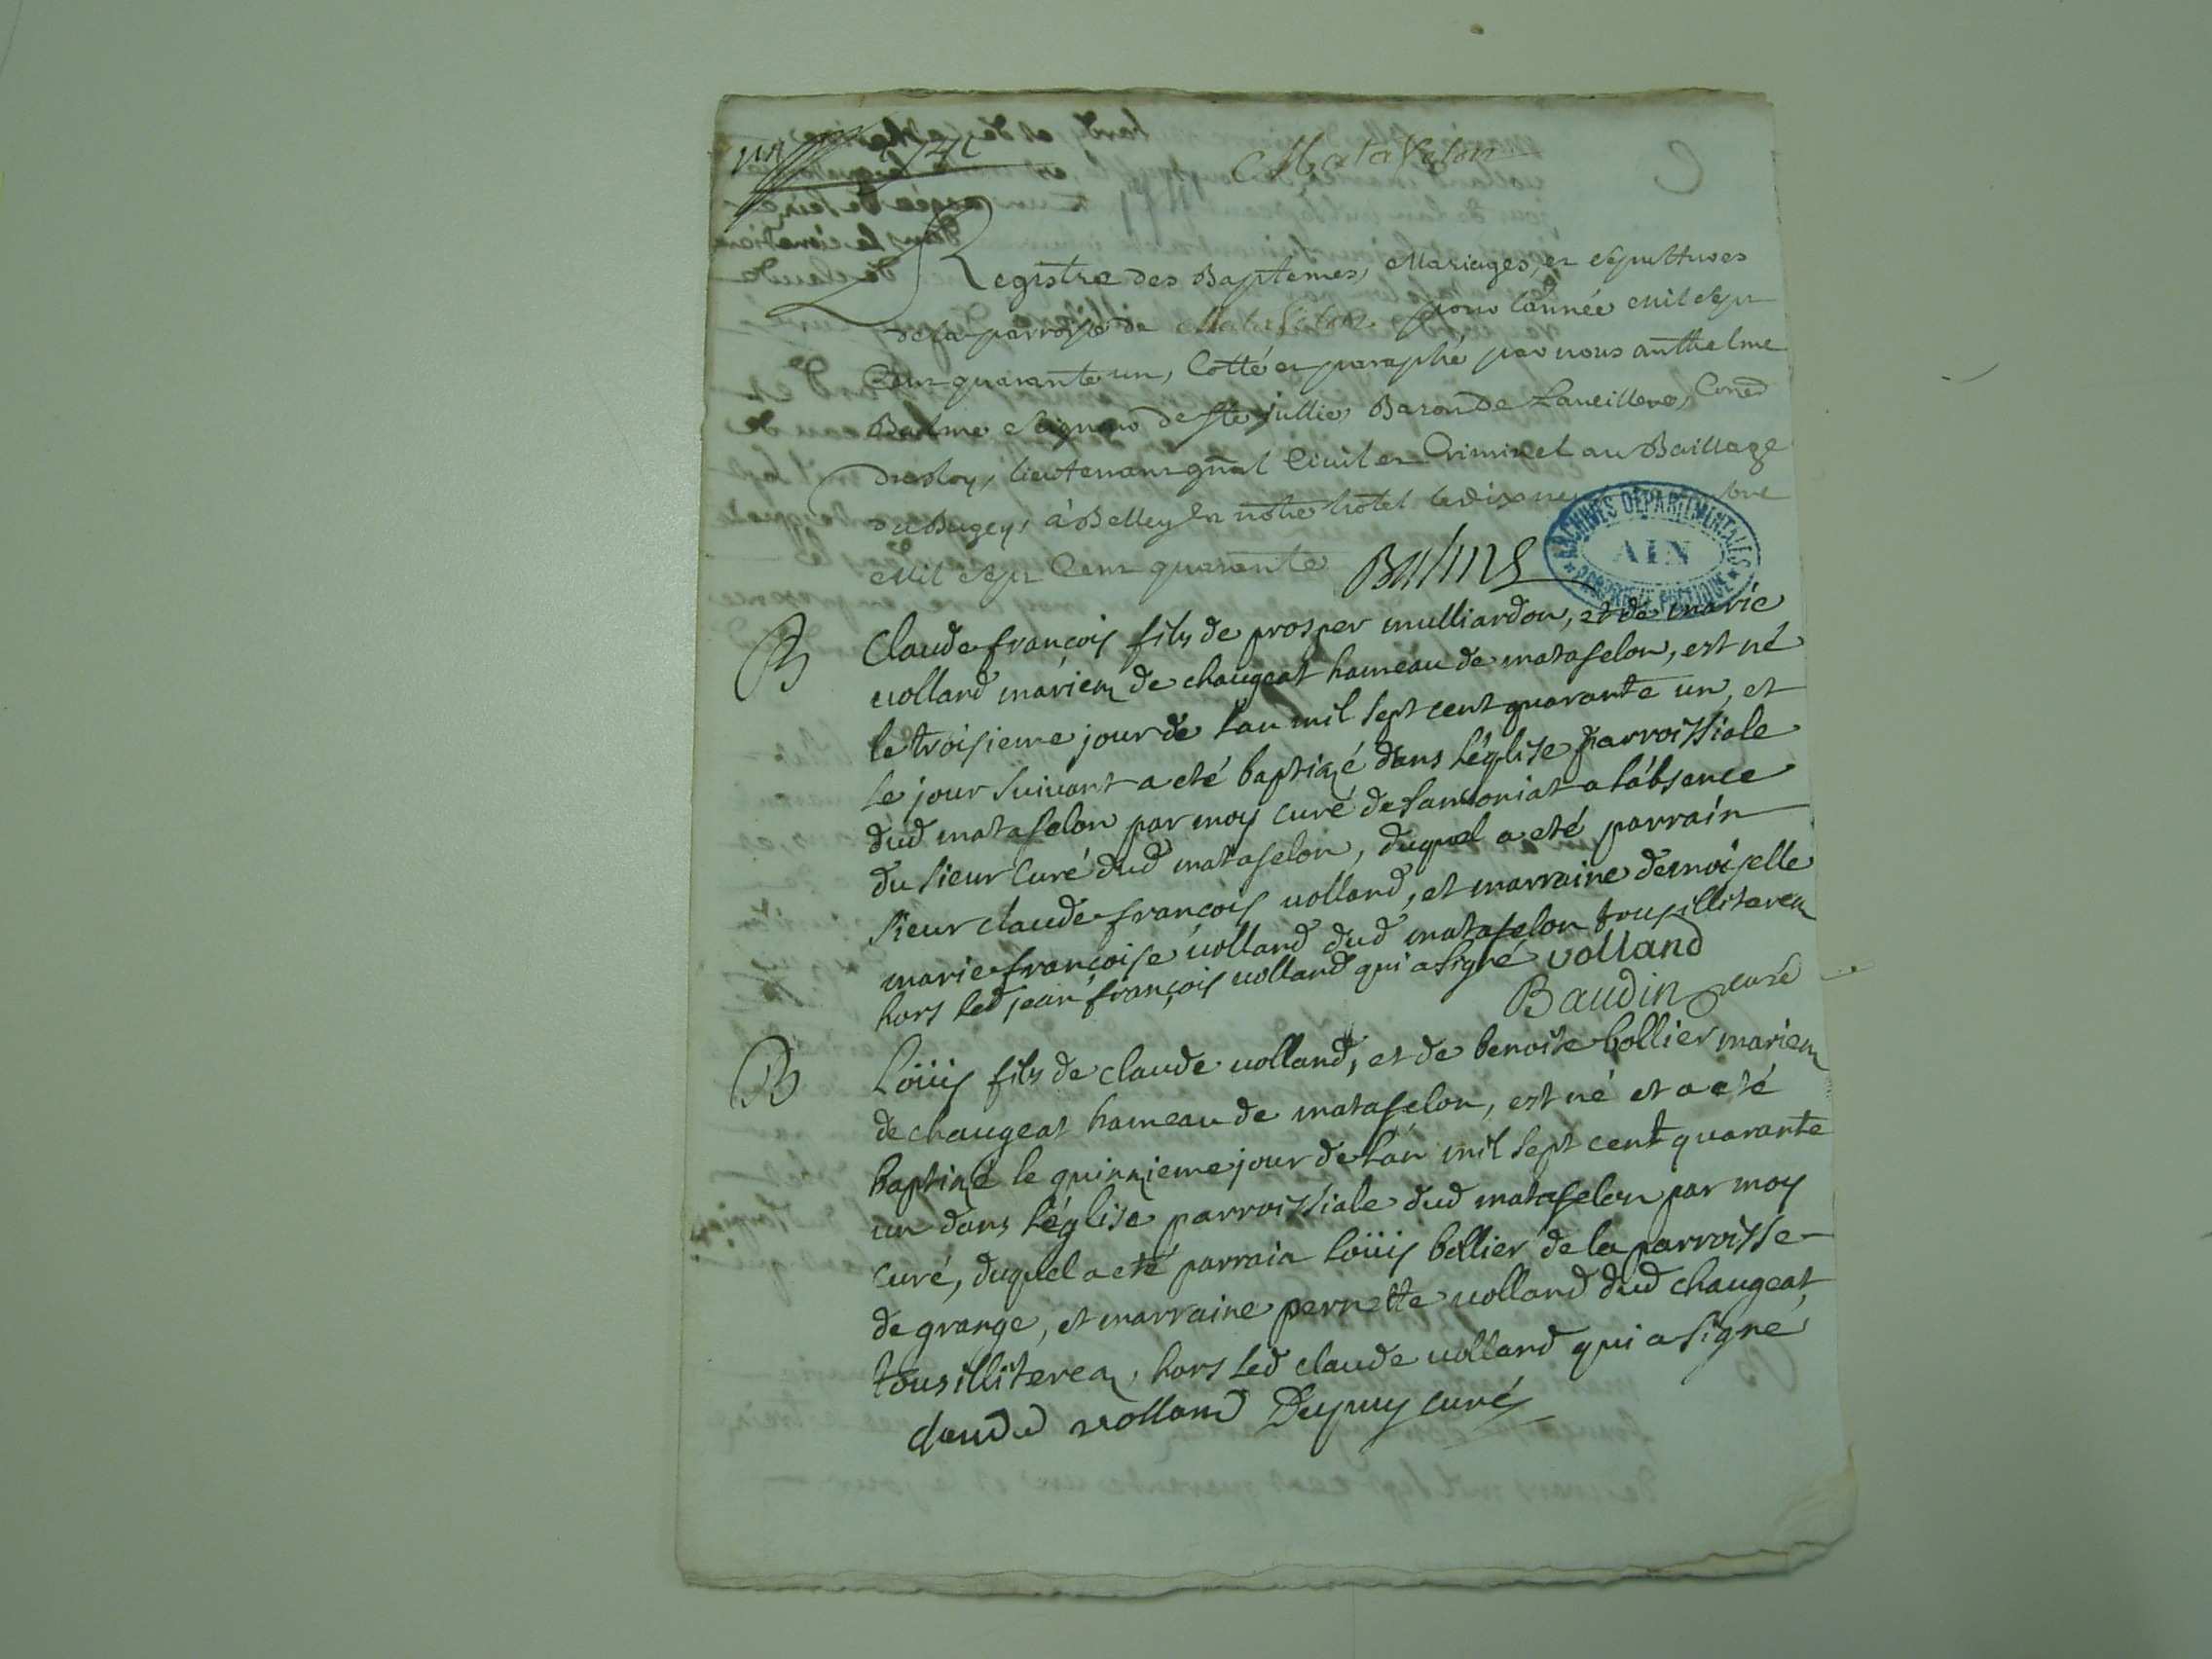 1741
Matafelon
Registre des Baptemes, Mariages, et sepultures
de la parroisse de Matafelon pour l'année mil sept
Cent quarante un, Cotté et paraphé par nous anthelme
Balme seigneur de Ste jullie, Baron de Lauillere, Coner
du Roy, lieutenant gnal Ciuil et Criminel au Bailliage
du Bugey, à Belley en notre hotel le dix neuf
mil sept Cent quarante Balme
ARCHIVES DÉPARTEMENTALES
AIN
PROPRIÉTÉ PUBLIQUE
B Claude françois fils de prosper mulliardon, et de marie
uolland mariez de chaugeat hameau de matafelon, est né
le troisieme jour de l'an mil sept cent quarante un, et
le jour suiuant a eté baptizé dans l'église parroissiale
dud matafelon par moy curé de samoniat a l'absence
du sieur curé dud matafelon, duquel a eté parrain
sieur claude françois uolland, et marraine demoiselle
marie françoise uolland dud matafelon tous illiterez
hors led jean françois uolland qui a signé volland
Baudin curé
B Loüis fils de claude uolland, et de benoite bollier mariez
de chaugeat hameau de matafelon, est né et a eté
baptizé le quinzieme jour de l'an mil sept cent quarante
un dans l'église parroissiale dud matafelon par moy
curé, duquel a eté parrain loüis bollier de la parroisse
de grange, et marraine pernette uolland dud chaugeat,
tous illiterez, hors led claude uolland qui a signé
claude volland Dupuy curé